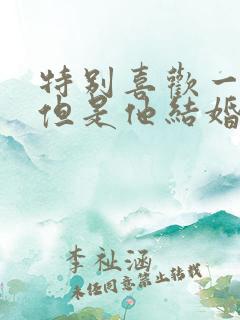 特别喜歡一
但是他結婚
李祉涵
未经同意禁止转载